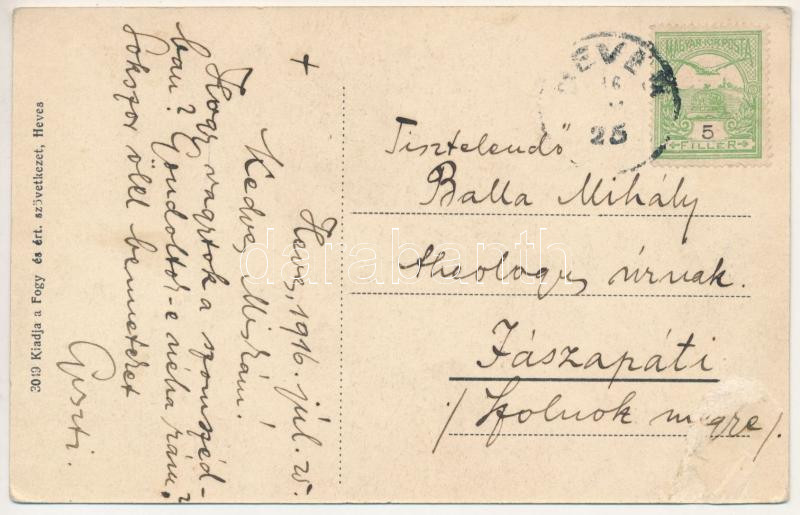 3049 Kiadja a Fogy és ért. szövetkezet, Heves
+
Heves, 1916. júl. 25.
Kedves Miskám!
Hogy vagytok a szomszéd-
ban? Gondoltok-e néha rám?
Sokszor ölel benneteket
Guszti.
HEVES
16
25
MAGYAR KIR. POSTA
5
FILLER
Tisztelendő
Balla Mihály
theologus úrnak.
Jászapáti
/Szolnok megye/.
darabanth